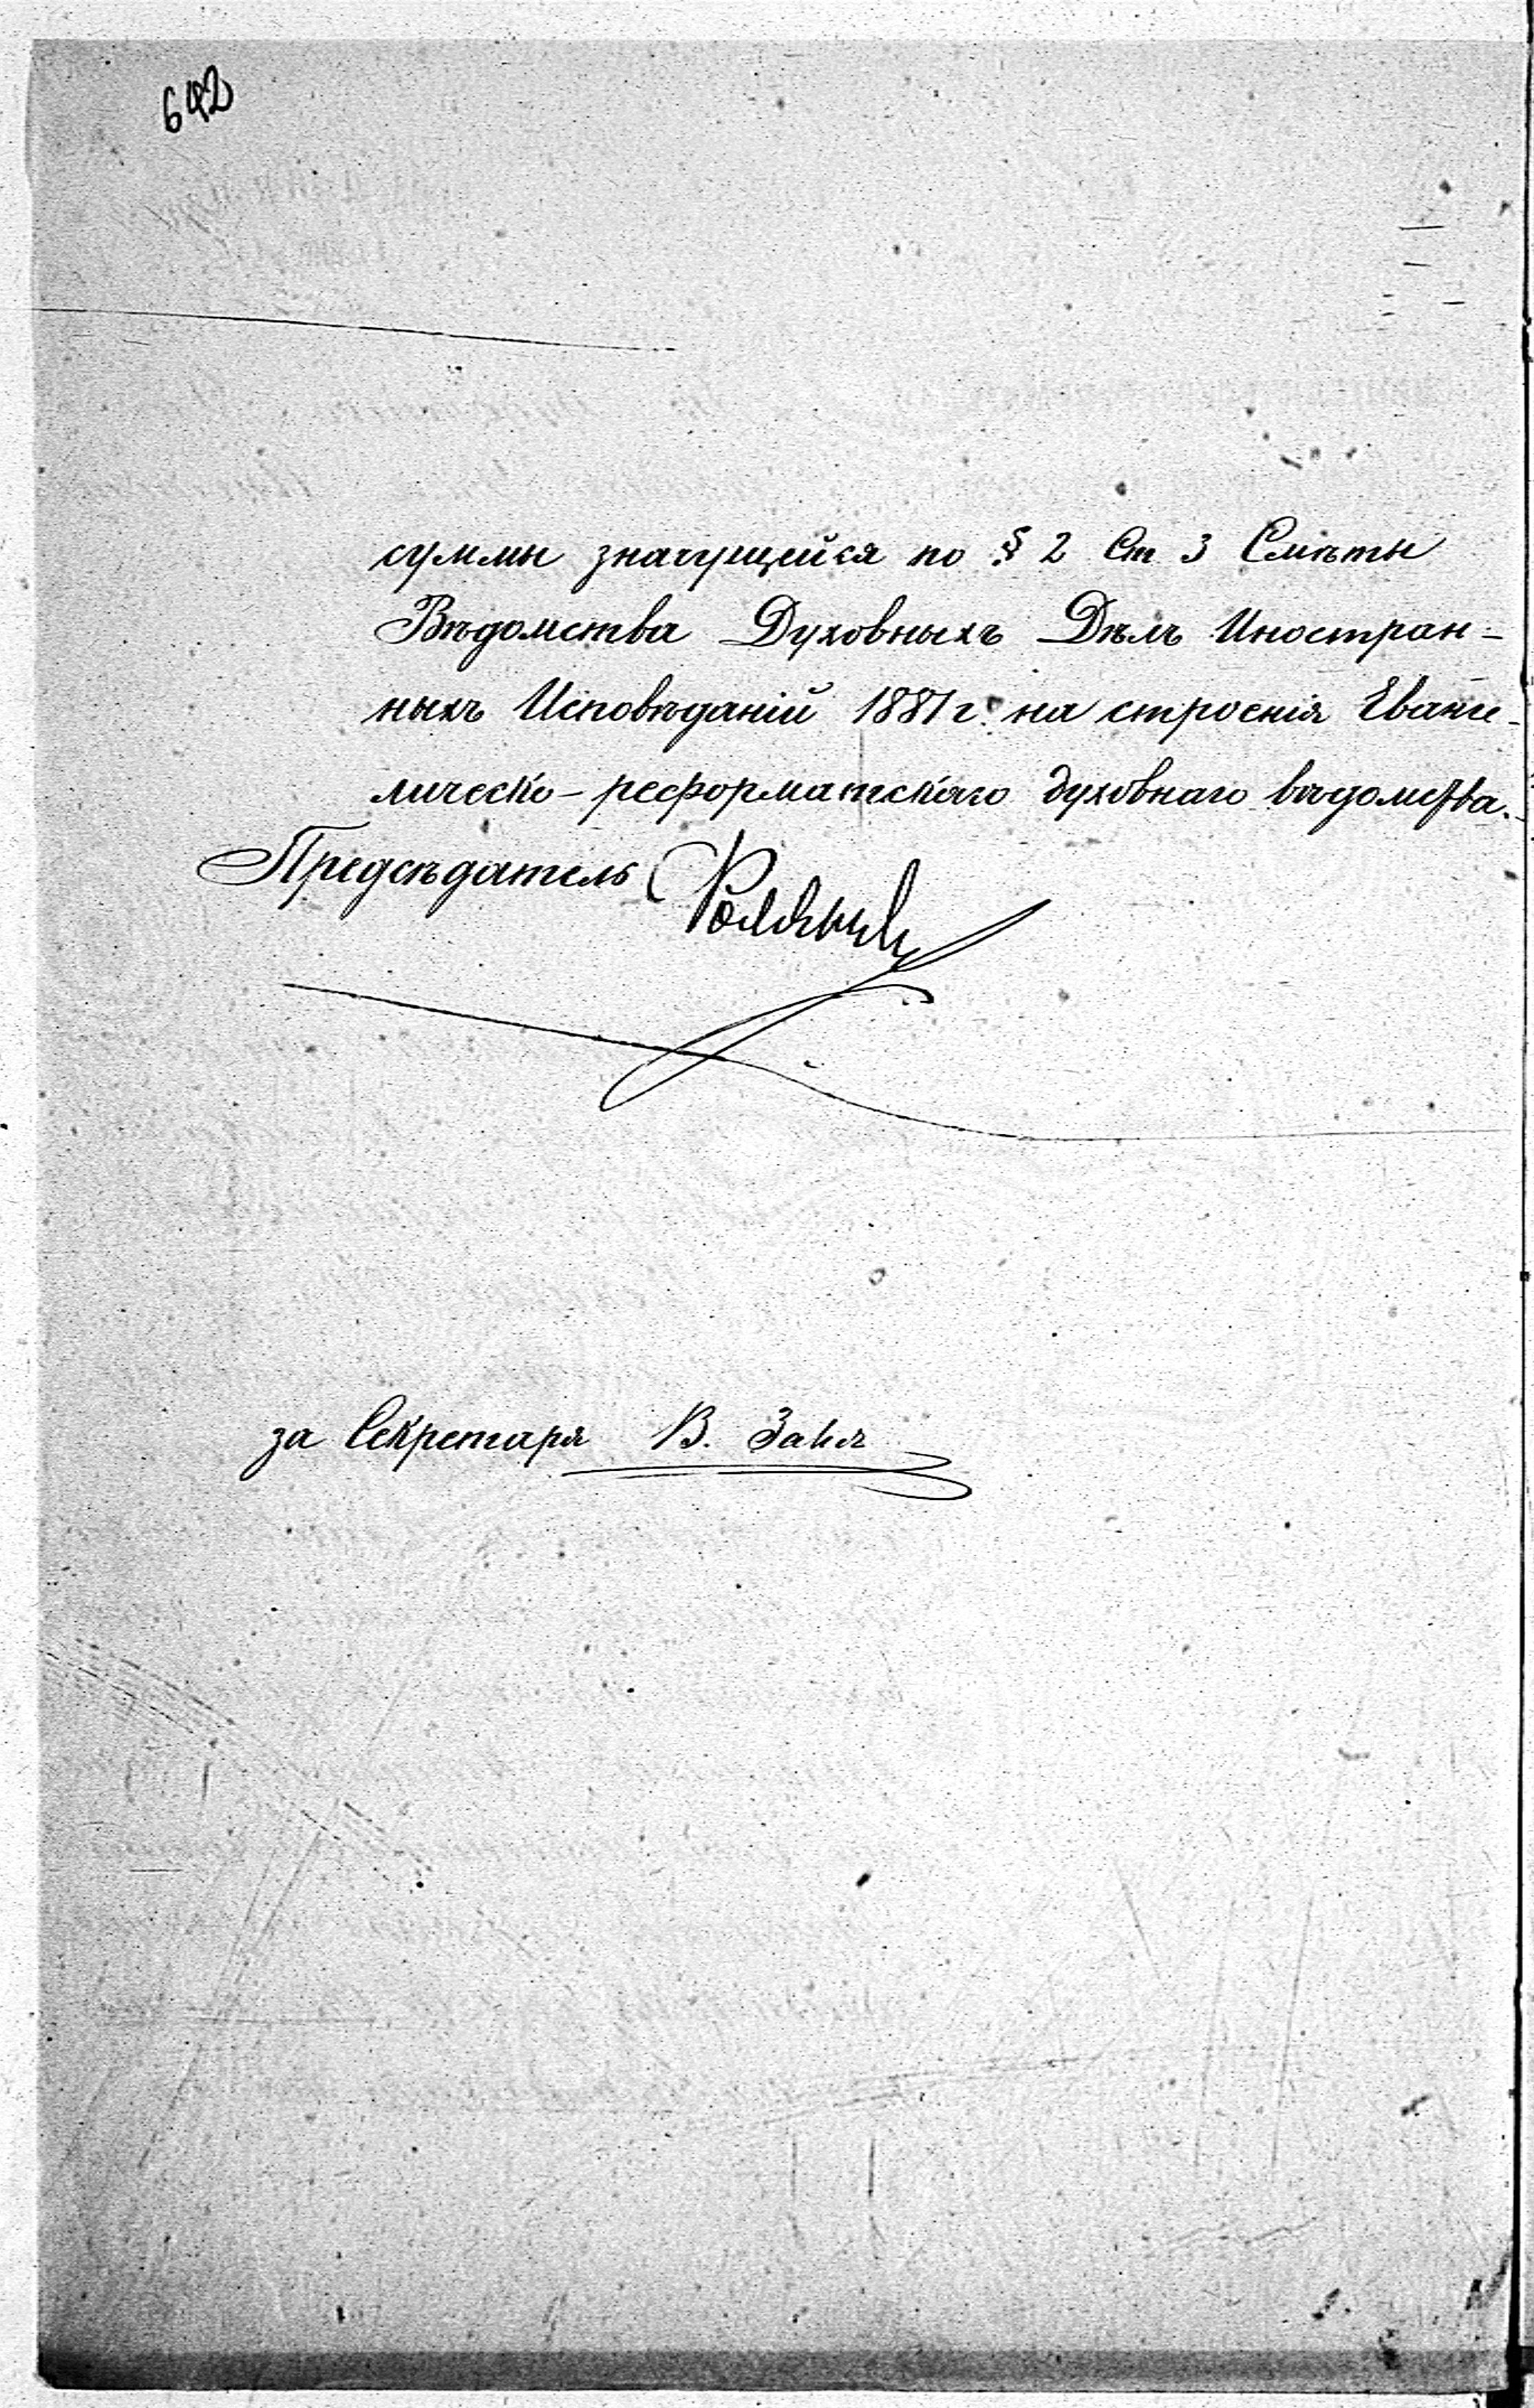 642
суммы значущейся по § 2 Ст 3 Смѣты
Вѣдомства Духовныхъ Дѣлъ Иностран-
ныхъ Исповѣданій 1881 г. на строенія Еванге-
лическо-реформатскаго духовнаго вѣдомства.
Предсѣдатель
за Секретаря В.